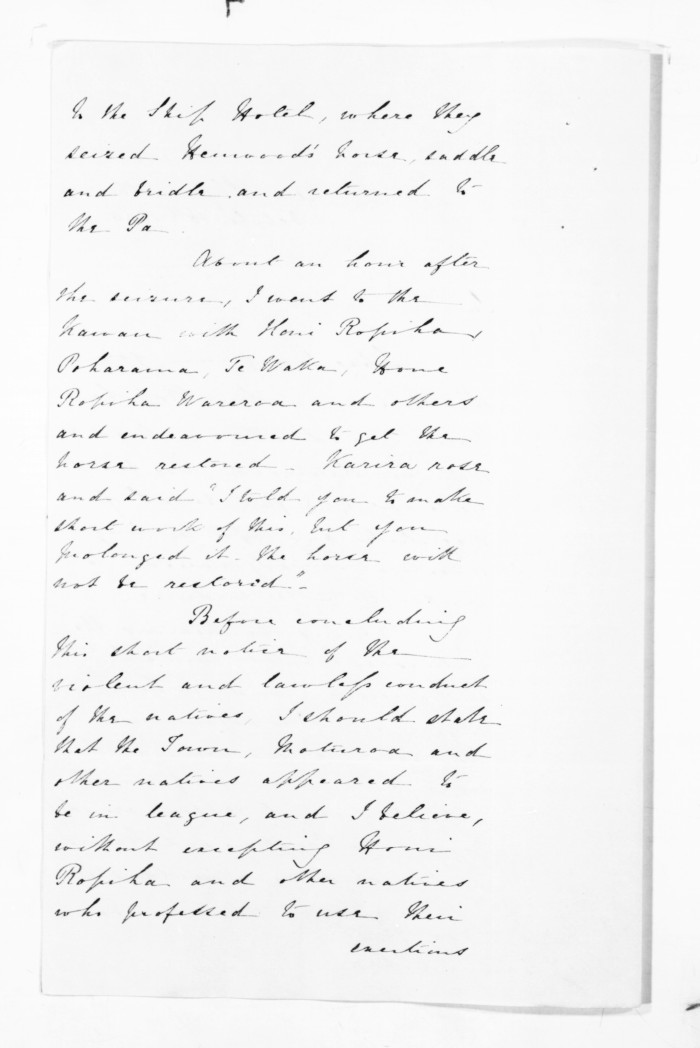 to the Ship Hotel, where they
seized Henwood's horse, saddle
and bridle, and returned to
the Pa.
About an hour after
the seizure, I went to the
Kawau with Honi Ropiha,
Poharama, Te Waka, Hone
Ropiha Wareroa and others
and endeavoured to get the
horse restored. Karira rose
and said "I told you to make
short work of this, but you
prolonged it. The horse will
not be restored".
Before concluding
this short notice of the
violent and lawless conduct
of the natives, I should state
that the Town, Moturoa and
other natives appeared to
be in league, and I believe,
without excepting Honi
Ropiha and other natives
who professed to use their
exertions